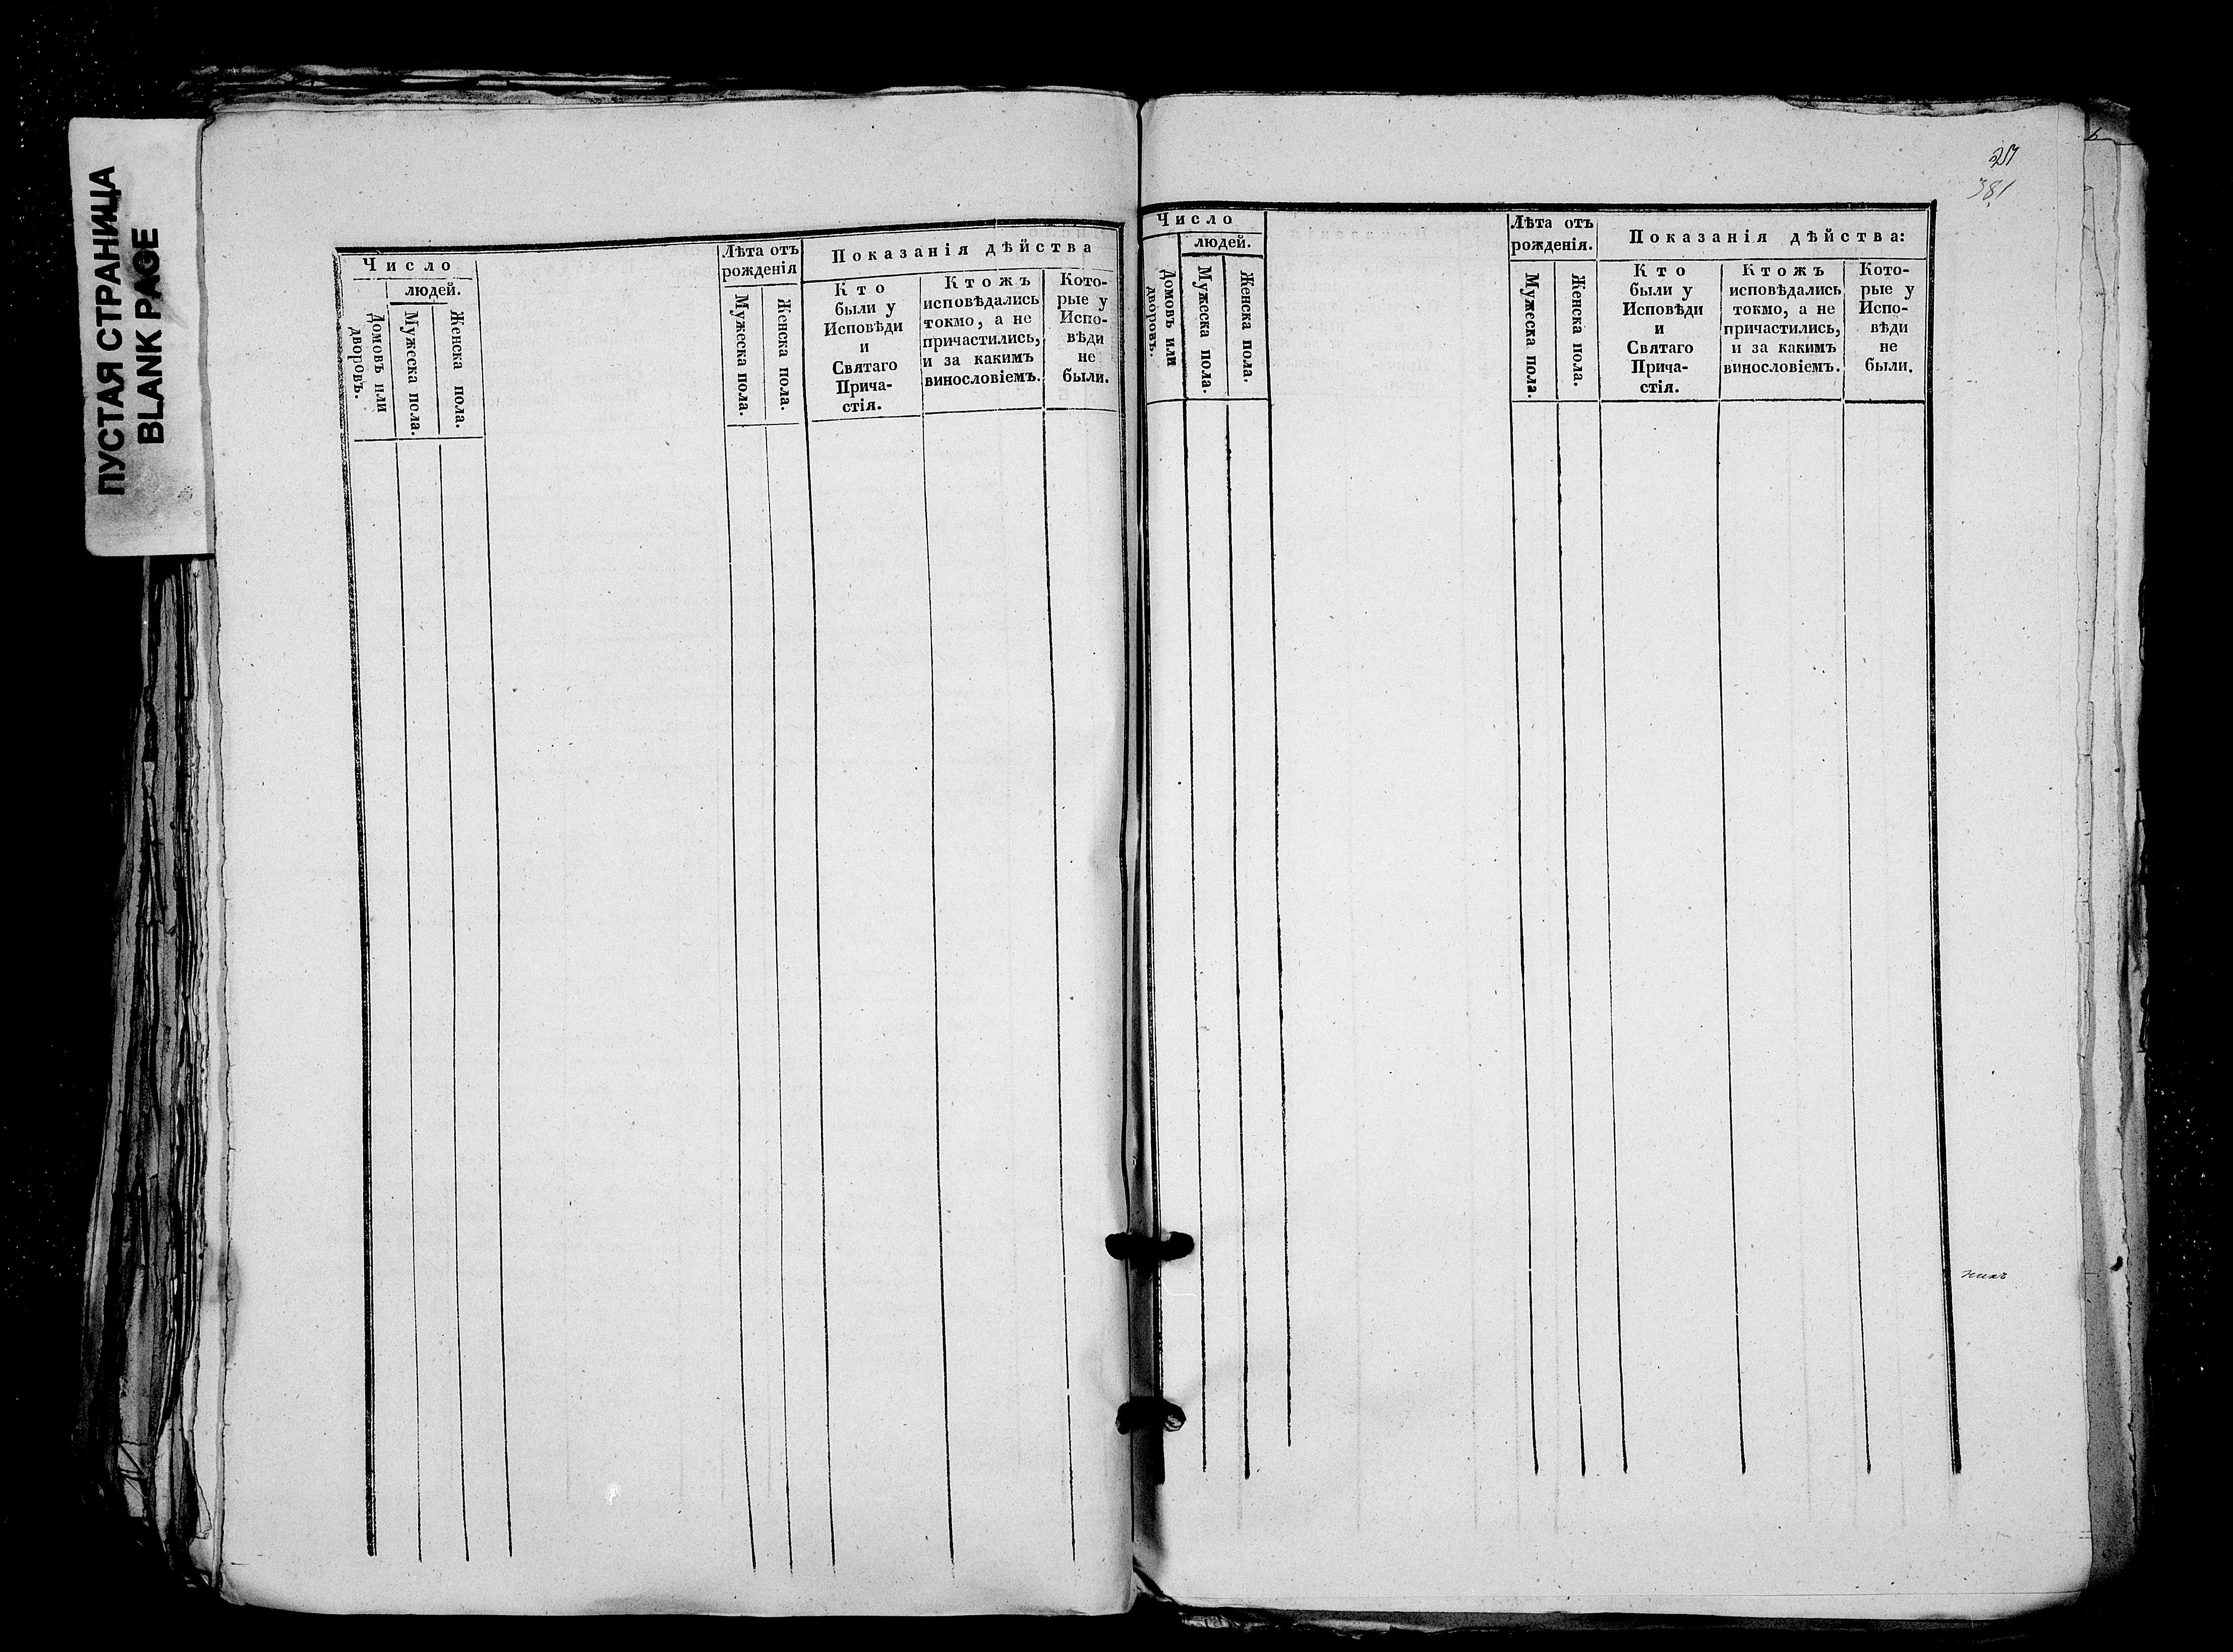 ПУСТАЯ СТРАНИЦА
BLANK PAGE
Число
людей.
Домовъ или
дворовъ.
Мужеска пола.
Женска пола.
Лѣта отъ
рожденія
Мужеска пола.
Женска пола.
Показанія дѣйства
Кто
были у
Исповѣди
и
Святаго
Прича-
стія.
Ктожъ
исповѣдались
токмо, а не
причастились,
и за какимъ
винословіемъ.
Кото-
рые у
Испо-
вѣди
не
были.
381
Число
людей.
Домовъ или
дворовъ.
Мужеска пола.
Женска пола.
Лѣта отъ
рожденія.
Мужеска пола.
Женска пола.
Показанія дѣйства:
Кто
были у
Исповѣди
и
Святаго
Прича-
стія.
Ктожъ
исповѣдались
токмо, а не
причастились,
и за какимъ
винословіемъ.
Кото-
рые у
Испо-
вѣди
не
были.